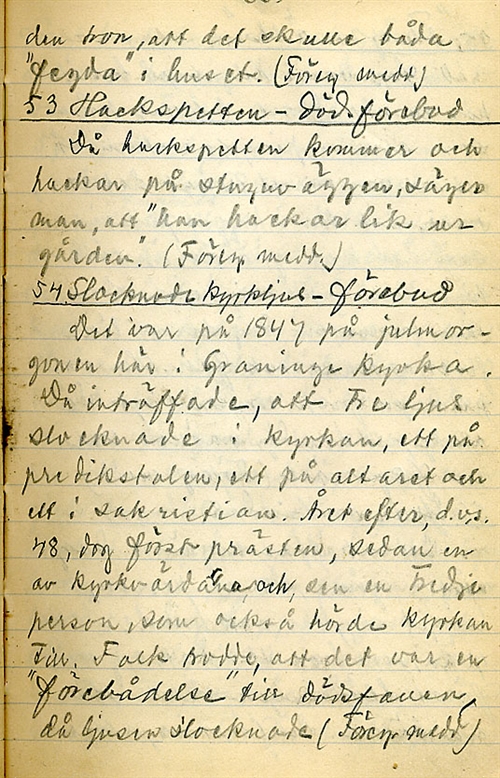 den tron, att det skulle båda
"fegda" i huset. (Föreg. medd.)
53 Hackspetten - dödsförebud
Då hackspetten kommer och
hackar på stuguväggen, säger
man, att "han hackar lik ur
gården". (Föreg. medd.)
54. Slocknade kyrkljus - förebud
Det var på 1847 på julmor-
gonen här i Graninge kyrka.
Då inträffade, att tre ljus
slocknade i kyrkan, ett på
predikstolen, ett på altaret och
ett i sakristian. Året efter, d.v.s.
48, dog först prästen, sedan en
av kyrkvärdarna, och, sen en tredje
person, som också hörde kyrkan
till. Folk trodde, att det var en
"förebådelse" till dödsfallen,
då ljusen slocknade (Föreg. medd.)